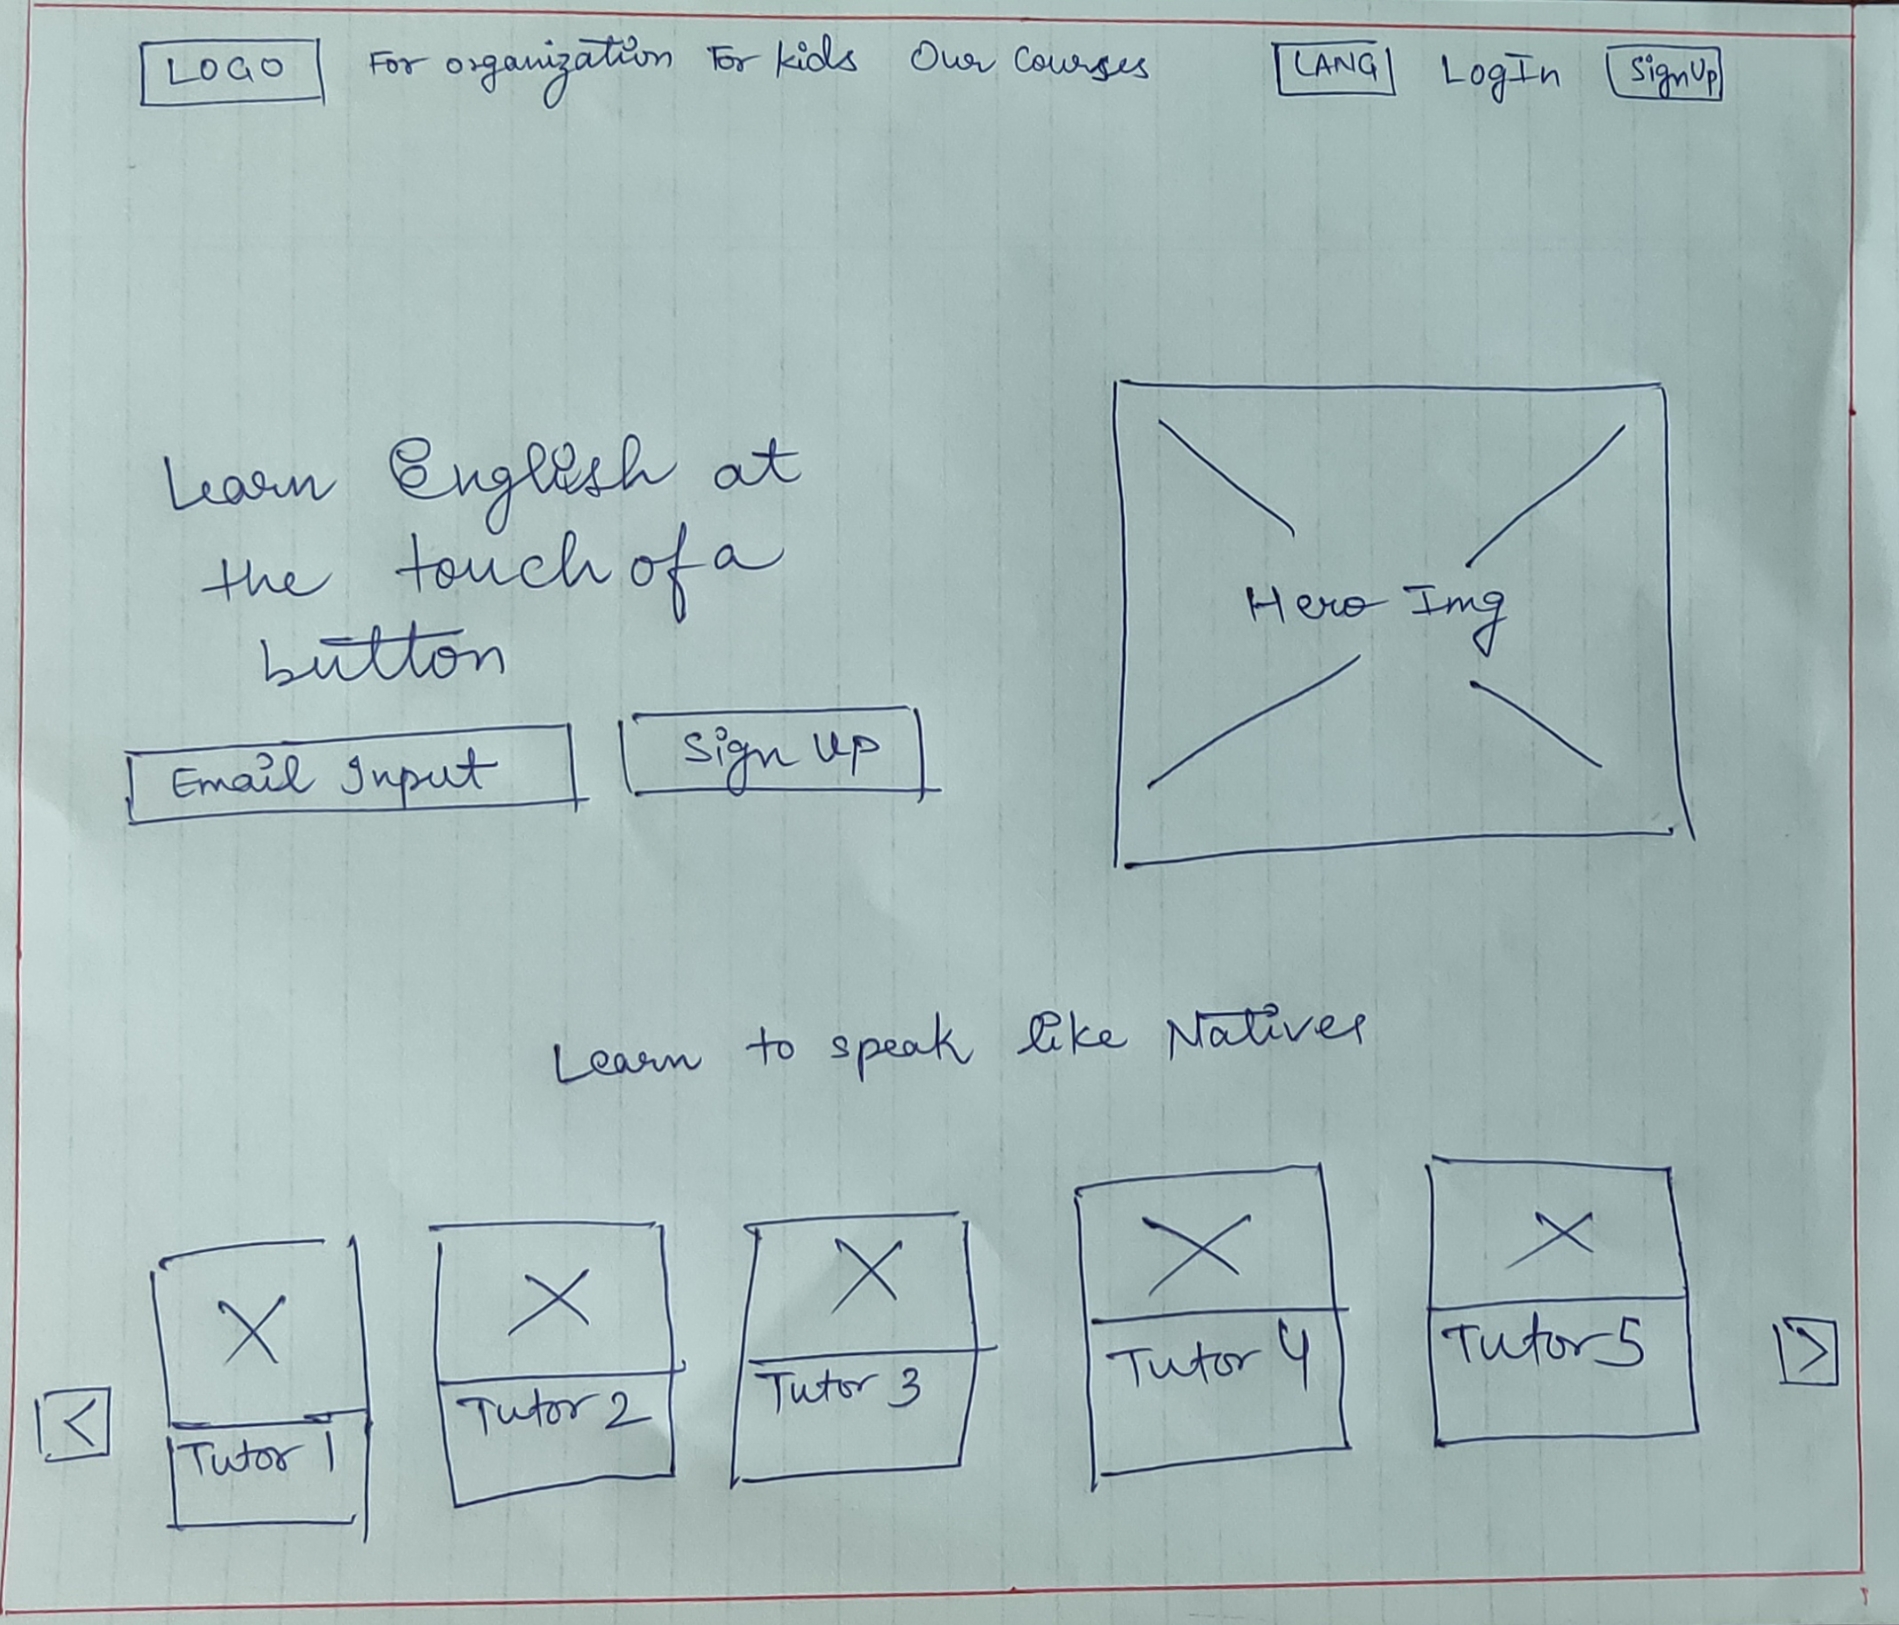 LOGO For organization For kids Our Courses LANG LogIn SignUp
Learn English at
the touch of a
button
Hero Img
Email Input Sign Up
Learn to speak like Natives
< Tutor 1 Tutor 2 Tutor 3 Tutor 4 Tutor 5 >